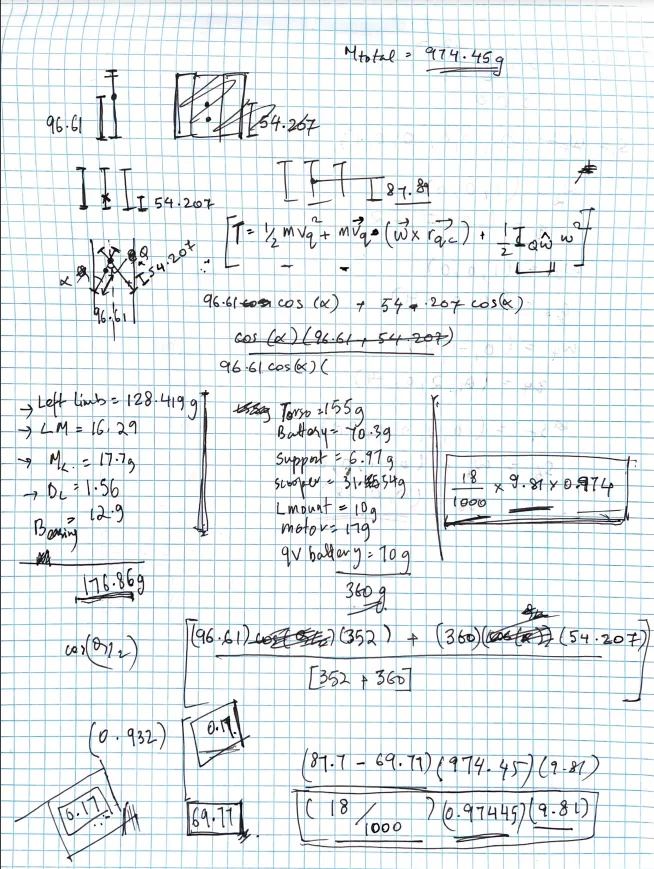 Mtotal = 974.45g
96.61
54.207
54.207
87.89
[T = 1/2 m vq² + m vq • (ω × rqc) + 1/2 I Qω̂ ω²]
Q
α
54.207
96.61
96.61 cos (α) + 54.207 cos(α)
cos (α) (96.61 + 54.207)
96.61 cos(α) (
→ Left limb = 128.419 g
→ LM = 16.29
→ ML = 17.7g
→ DL = 1.56
Bearing = 12.9
176.86g
Torso = 155g
Battery = 70.3g
Support = 6.97g
Lmount = 10g
motor = 17g
9V battery = 70g
360g
18/1000 × 9.81 × 0.974
[(96.61) (352) + (360) (54.207)]
[352 + 360]
(0.932)
0.17
6.17
69.77
(87.7 - 69.77) (974.45) (9.81)
(18/1000) (0.97445) (9.81)